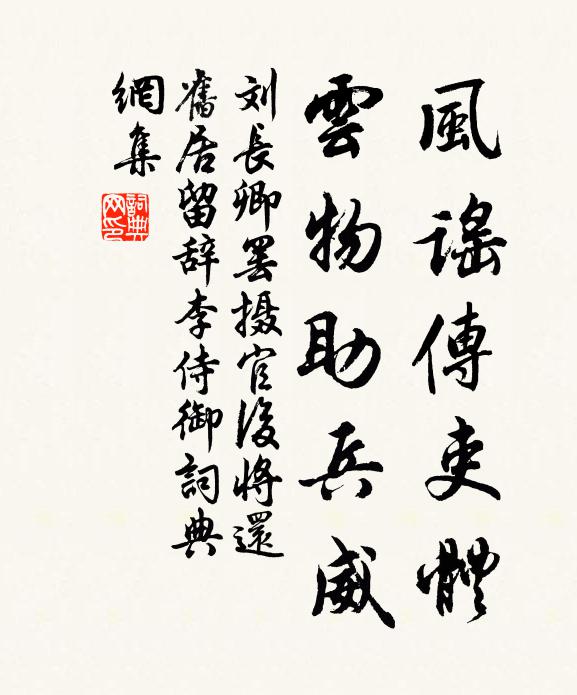 風謠傳吏體
雲物助兵威
刘長卿罢摄官後將還
舊居留辞李侍御詞典
網集
詞典
网印